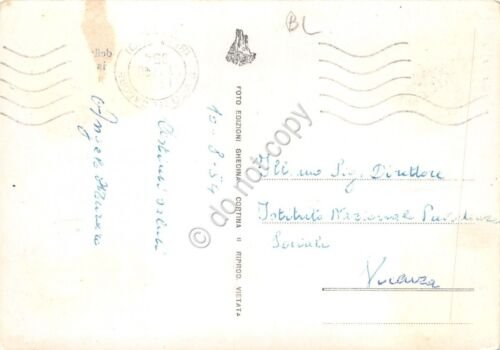 BL
10-8-54
Distinti saluti
FOTO EDIZIONI GHEDINA - CORTINA - RIPROD. VIETATA
Ill.mo Sig. Direttore
Istituto Nazionale Previdenza
Sociale
Vicenza
do not copy